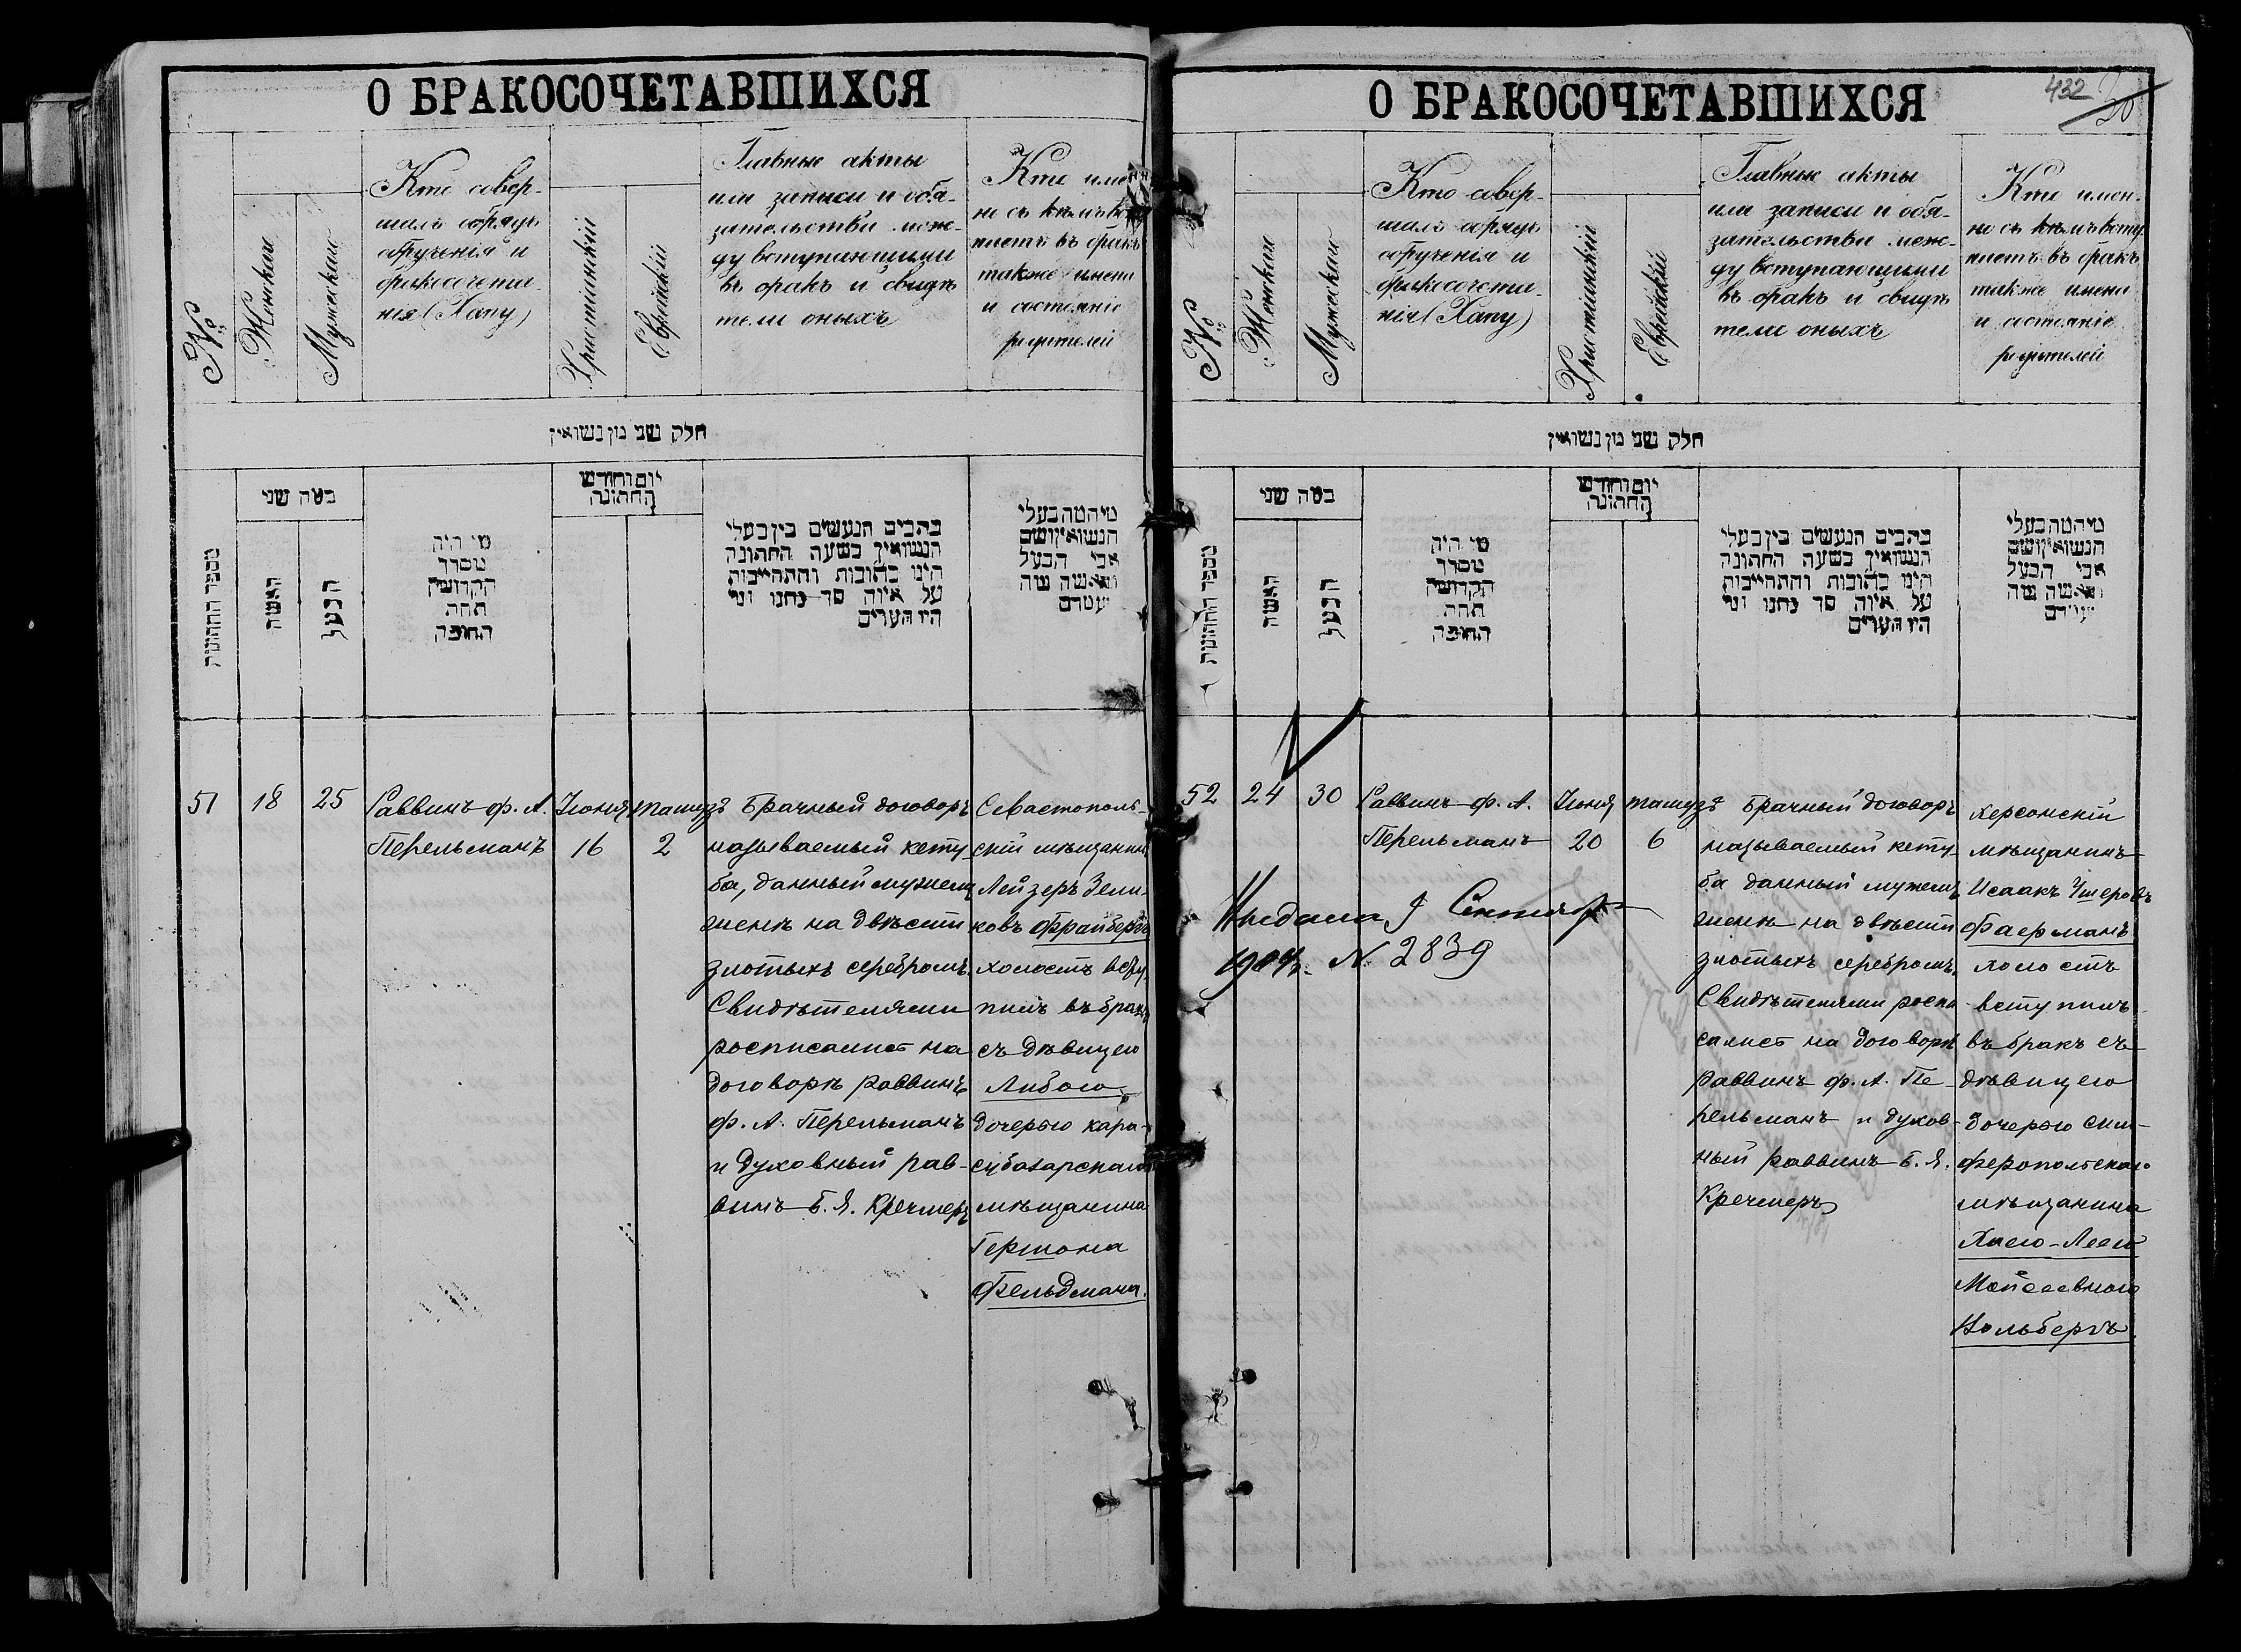 О БРАКОСОЧЕТАВШИХСЯ
№
Женская
Мужеская
Кто совер-
шалъ обрядъ
обрученія и
бракосочета-
нія (Хапу)
Христіанскій
Еврейскій
Главные акты
или записи и обя-
зательства меж-
ду вступающими
въ бракъ и свидѣ
тели оныхъ
Кто имен
но съ кѣмъ всту
паетъ въ бракъ
также имена
и состояніе
родителей
חלק שני מן נשואין
מספר החתונות
כמה שני
האשה
הבעל
מי היה
מסדר
הקדושין
תחת
החופה
יום וחודש
החתונה
כתבים הנעשים בין בעלי
הנשואין בשעה החתונה
הינו כתובות והתחייבות
על איזה סך נתנו ומי
היו העדים
מי המה בעלי
הנשואין ושם
אבי הבעל
והאשה מה
מעמדם
51
18
25
Раввинъ ф. А.
Перельманъ
Іюня
16
тамузъ
2
Брачный договоръ
называемый кету-
ба, данный мужемъ
женѣ на двѣсти
злотыхъ серебромъ.
Свидѣтелями
росписались на
договорѣ раввинъ
ф. А. Перельманъ
и духовный рав-
винъ Б. Я. Кречмеръ
Севастополь-
скій мѣщанинъ
Лейзеръ Зели-
ковъ Фрайбергъ
холостъ всту-
пилъ въ бракъ
съ дѣвицею
Либою,
дочерью кара-
субазарскаго
мѣщанина
Гершона
Фельдмана.
О БРАКОСОЧЕТАВШИХСЯ
432
№
Женская
Мужеская
Кто совер-
шалъ обрядъ
обрученія и
бракосочета-
нія (Хапу)
Христіанскій
Еврейскій
Главные акты
или записи и обя-
зательства меж-
ду вступающими
въ бракъ и свидѣ
тели оныхъ
Кто имен-
но съ кѣмъ всту
паетъ въ бракъ
также имена
и состояніе
родителей
חלק שני מן נשואין
מספר החתונות
כמה שני
האשה
הבעל
מי היה
מסדר
הקדושין
תחת
החופה
יום וחודש
החתונה
כתבים הנעשים בין בעלי
הנשואין בשעה החתונה
הינו כתובות והתחייבות
על איזה סך נתנו ומי
היו העדים
מי המה בעלי
הנשואין ושם
אבי הבעל
והאשה מה
מעמדם
52
24
30
Раввинъ ф. А.
Перельманъ
Іюня
20
тамузъ
6
Выдана 9 Сентября
№ 2839
Брачный договоръ
называемый кету-
ба данный мужемъ
женѣ на двѣсти
злотыхъ серебромъ.
Свидѣтелями роспи-
сались на договорѣ
раввинъ ф. А. Пе-
рельманъ и духов-
ный раввинъ Б. Я.
Кречмеръ
Херсонскій
мѣщанинъ
Исаакъ Ушеровъ
Фаерманъ
холостъ
вступилъ
въ бракъ съ
дѣвицею
дочерью сим-
феропольскаго
мѣщанина
Хаею-Леею
Мойсеевною
Вольбергъ.